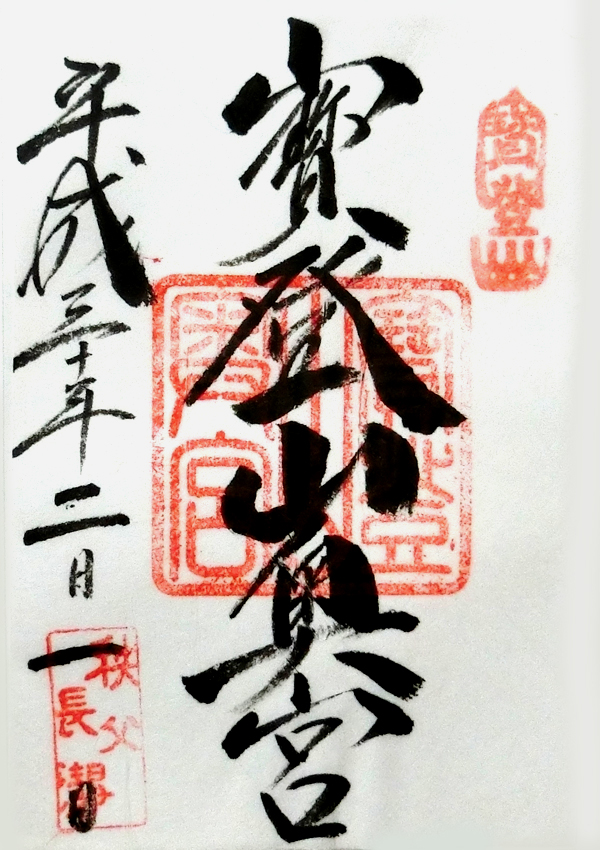 寶登山
寶登山奥宮
寶登山
奥宮
平成三十年二月一日
秩父
長瀞